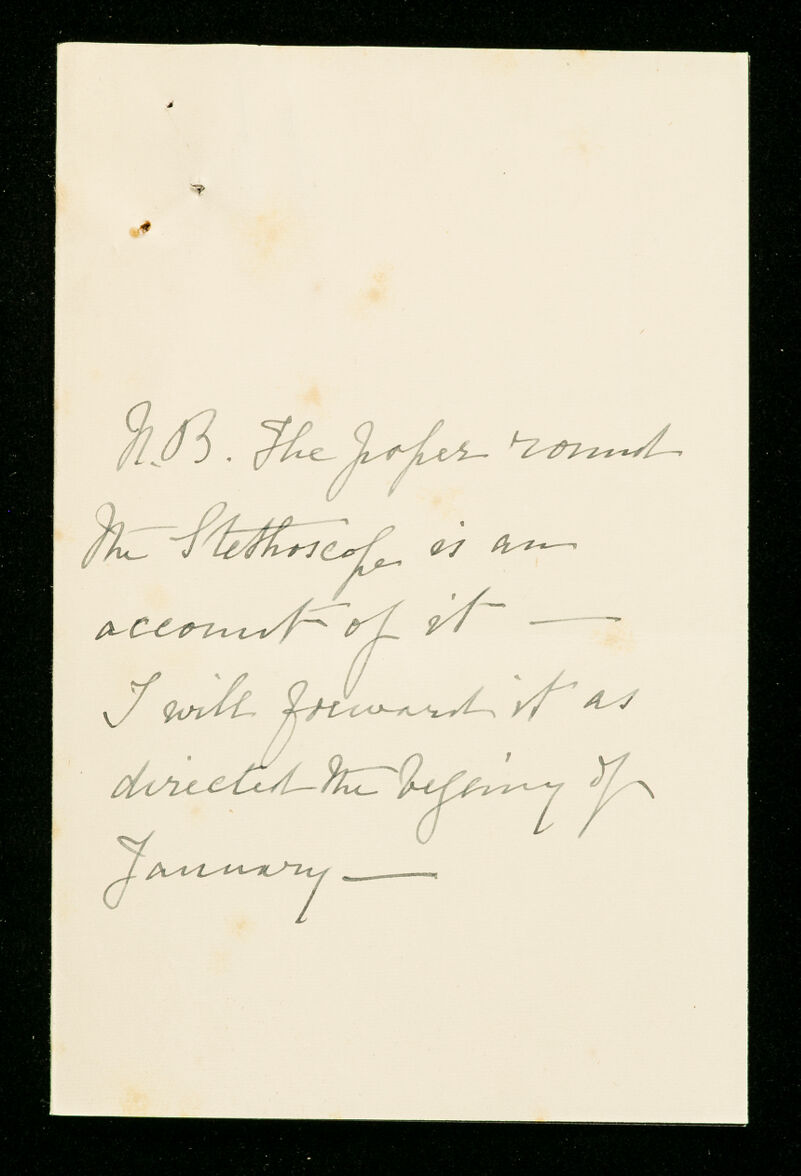 N.B. The paper round
the Stethoscope is an
account of it —
I will forward it as
directed the beging of
January —